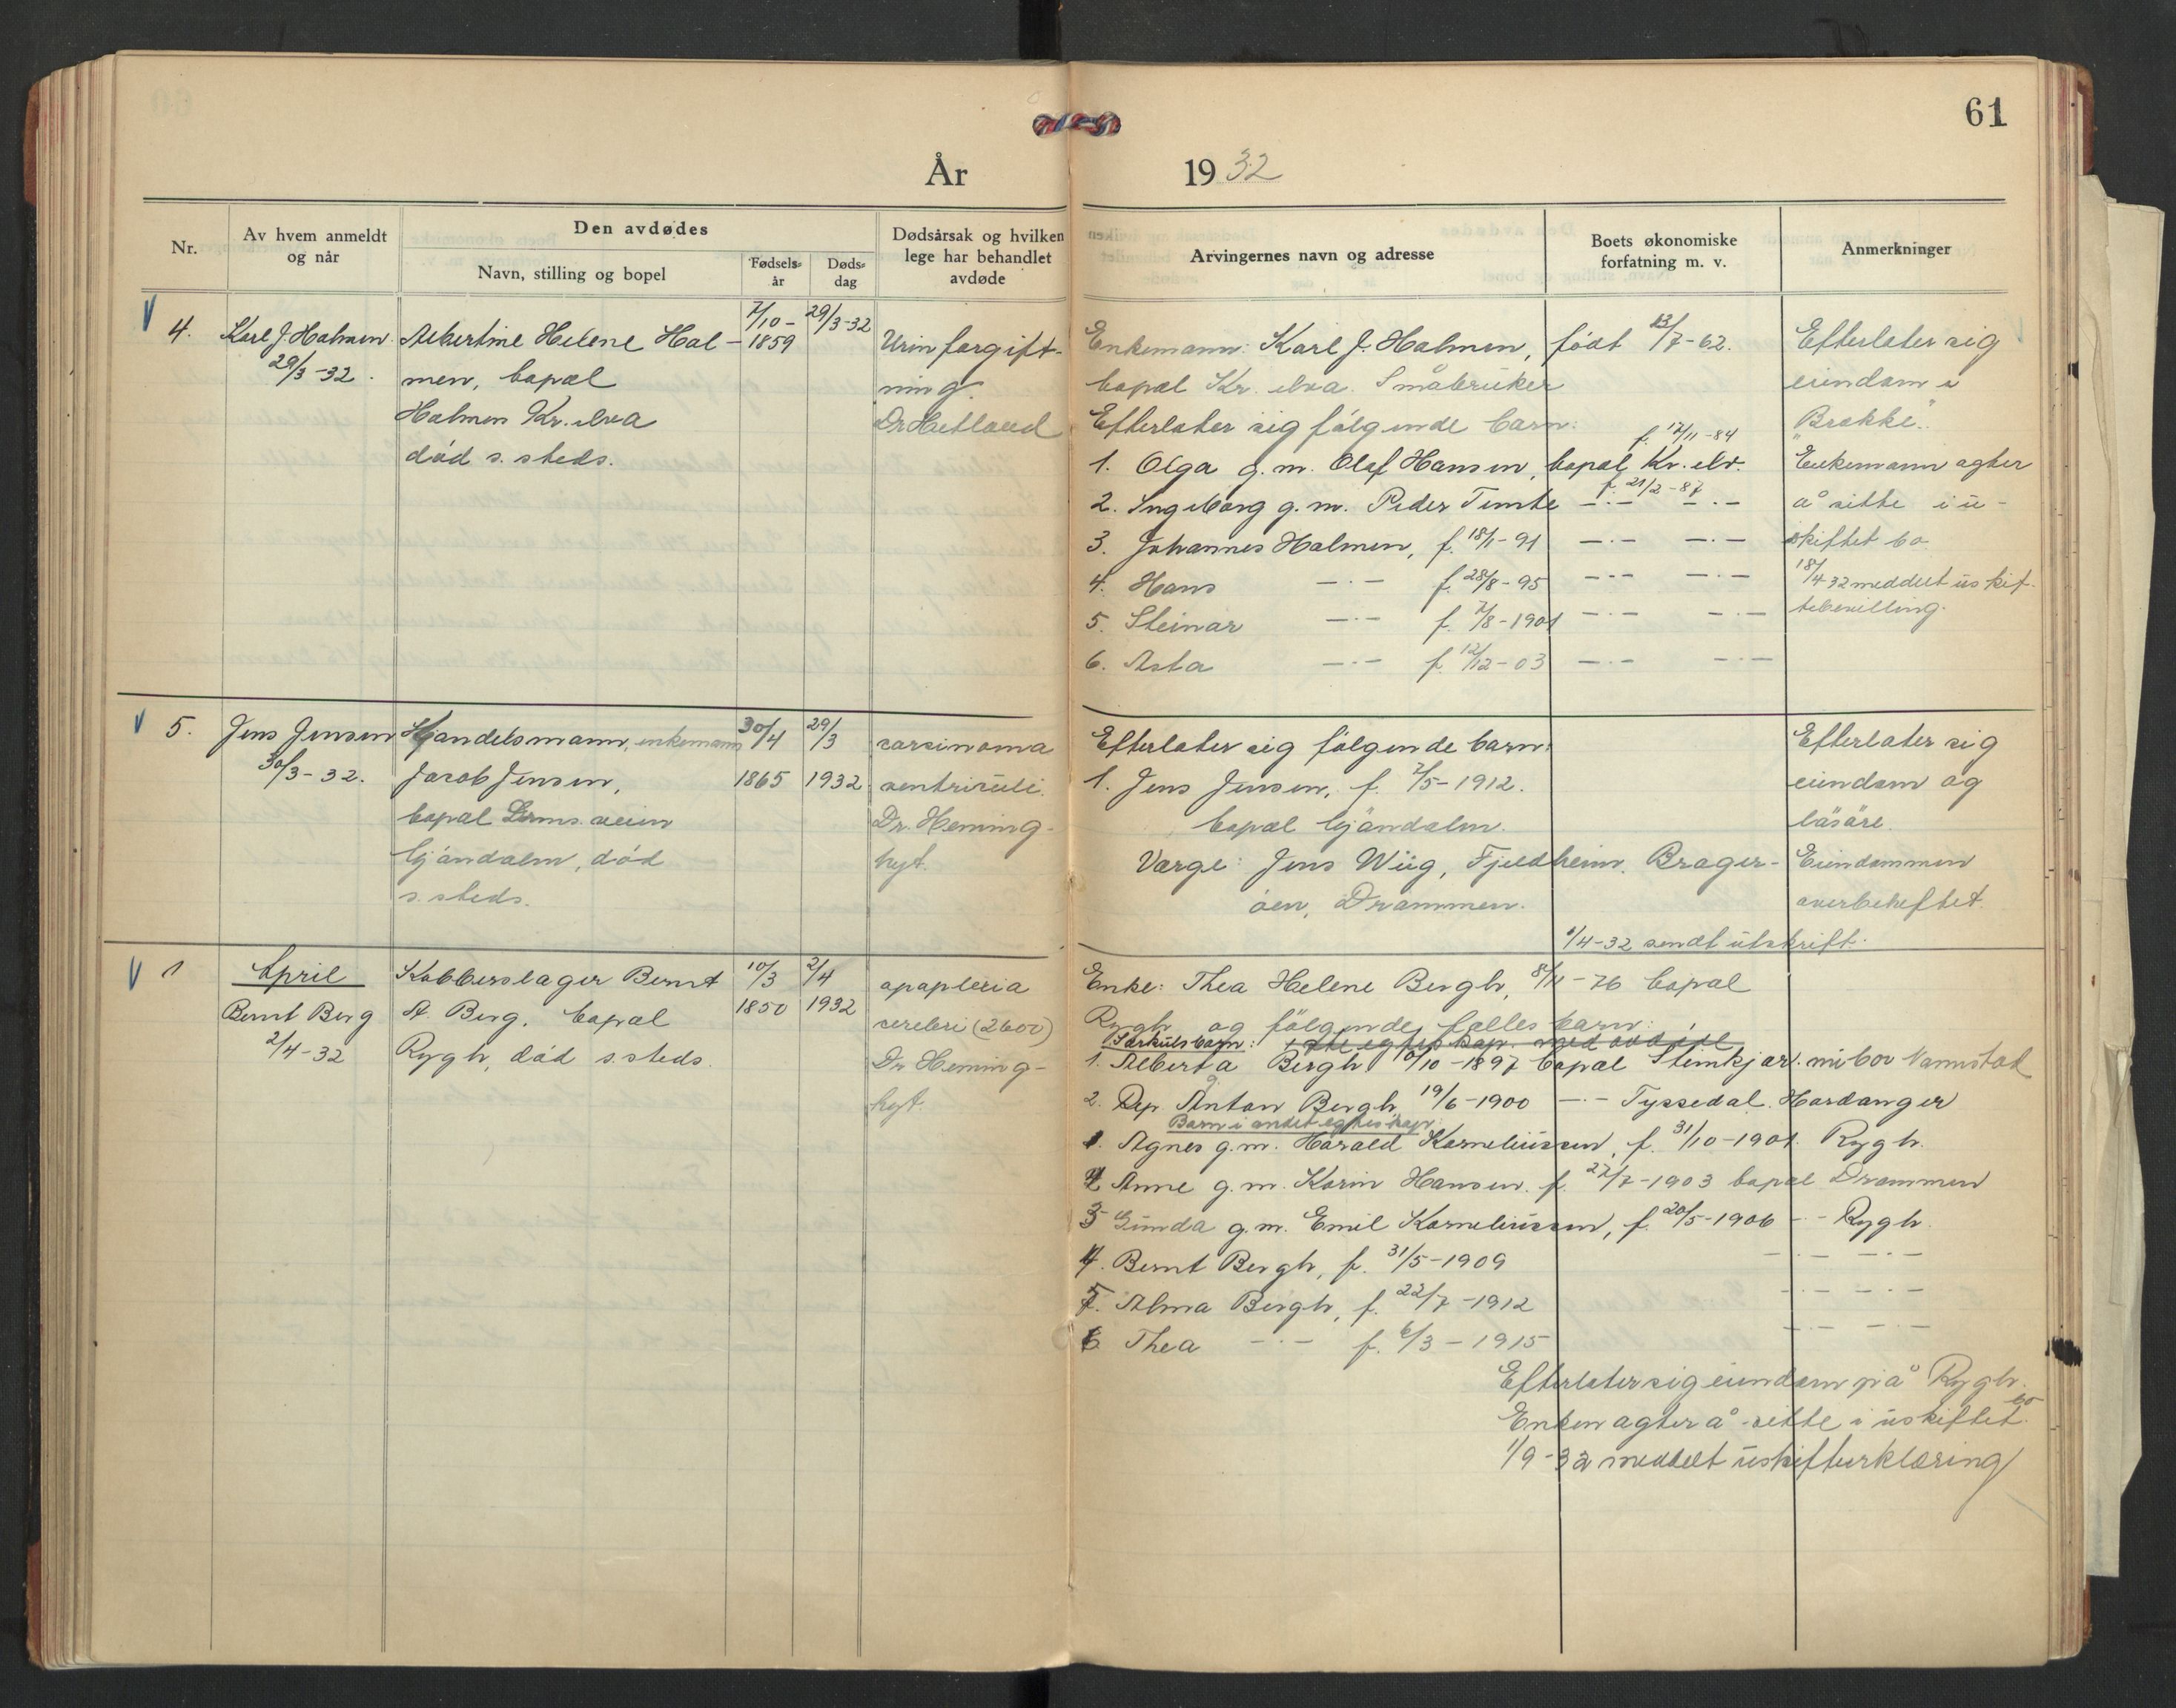 61
År 1932
Nr.
Av hvem anmeldt
og når
Den avdødes
Navn, stilling og bopel
Fødsels-
år
Døds-
dag
Dødsårsak og hvilken
lege har behandlet
avdøde
Arvingernes navn og adresse
Boets økonomiske
forfatning m. v.
Anmerkninger
4.
Karl J. Holmen
29/3-32.
Albertine Helene Hol-
men, bopæl
Holmen Kr. elva
død s. steds.
7/10-
1859
29/3-32
Urinforgift-
ning.
Dr Hetland
Enkemann: Karl J. Holmen, født 13/7-62.
bopæl Kr. elva. Småbruker
Efterlater sig følgende barn:
1. Olga g.m. Olaf Hansen, bopæl Kr. elv. f. 17/11-84
2. Ingeborg g.m. Peder Temte —·— —·— f. 21/2-87
3. Johannes Holmen, f. 18/1-91 —·— —·—
4. Hans —·— f. 28/8-95 —·— —·—
5. Steinar —·— f. 7/8-1901 —·— —·—
6. Asta —·— f. 12/12-03 —·— —·—
Efterlater sig
eiendom i
"Brekke".
Enkemann agter
å sitte i u-
skiftet bo.
18/4 32 meddelt uskif-
tebevilling.
5.
Jens Jensen
30/3-32.
Handelsmann, enkemann
Jacob Jensen,
bopæl veien
Mjøndalen, død
s. steds.
30/4
1865
29/3
1932
carcinoma
ventriculi.
Dr. Heming-
hyt.
Efterlater sig følgende barn:
1. Jens Jensen, f. 7/5-1912.
bopæl Mjøndalen.
Verge: Jens Wiig, Fjeldheim, Brager-
øen, Drammen.
1/4-32 sendt utskrift.
Efterlater sig
eiendom og
løsøre.
Eiendommen
overbeheftet.
1
April
Bernt Berg
2/4-32
Kobberslager Bernt
A. Berg, bopæl
Rygh, død s. steds.
10/3
1850
2/4
1932
apoplexia
cerebri (2600)
Dr Heming-
hyt.
Enke: Thea Helene Bergh, 8/11-76 bopæl
Rygh og følgende felles barn:
Særkulsbarn: ekteskap med avdøde
1. Alberta Bergh 10/10-1897 bopæl Steinkjær. nu bor
2. Anton Bergh 19/6-1900 —·— Tyssedal. Hardanger
Barn i andet egteskap:
1. Agnes g.m. Harald Korneliussen, f. 31/10-1901. Rygh.
2 Anne g.m. Karin Hansen. f. 27/7-1903 bopæl Drammen
3 Gunda g.m. Emil Korneliussen, f. 20/5-1906 -·- Rygh.
4. Bernt Bergh, f. 31/5-1909 —·— —·—
5. Alma Bergh, f. 22/7-1912 —·— —·—
6 Thea —·— f. 6/3-1915 —·— —·—
Efterlater sig eiendom på Rygh.
Enken agter å sitte i uskiftet bo.
1/9-32 meddelt uskifteerklæring